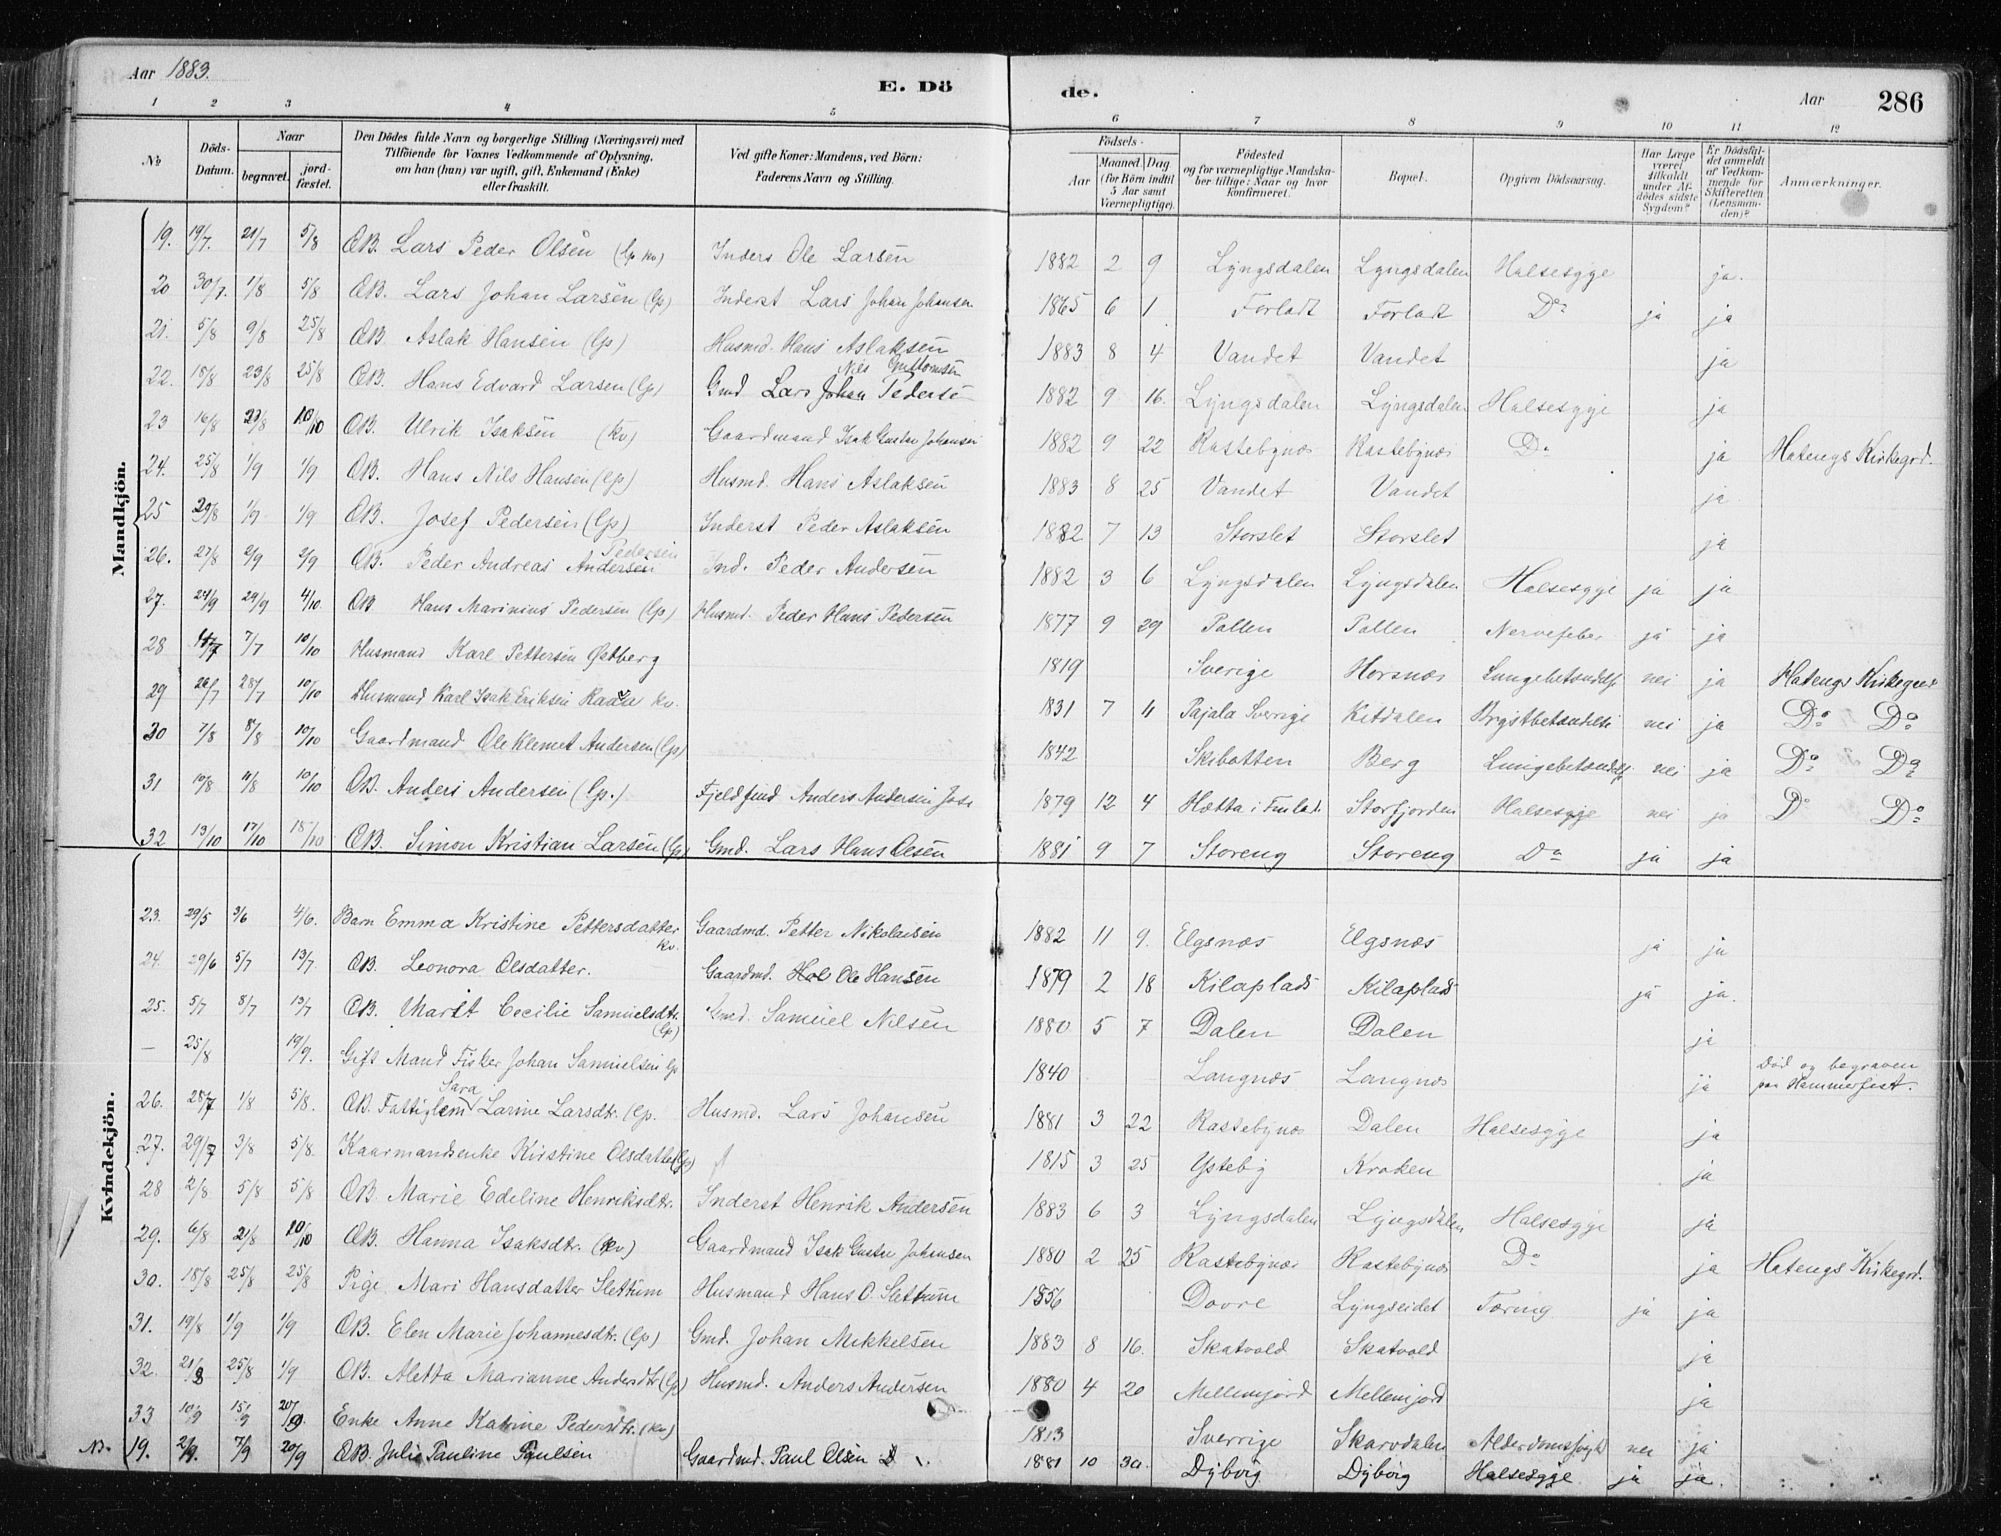 Aar 1883. E. Dö de. Aar 286
1 2 3 4 5 6 7 8 9 10 11 12
No Döds-Datum. Naar begravet. jord-fæstet. Den Dödes fulde Navn og borgerlige Stilling (Næringsvei) med Tilföiende for Voxnes Vedkommende af Oplysning, om han (hun) var ugift, gift, Enkemand (Enke) eller fraskilt. Ved gifte Koner: Mandens, ved Börn: Faderens Navn og Stilling. Födsels- Aar Maaned. Dag. (for Börn indtil 5 Aar samt Værnepligtige). Födested og for værnepligtige Mandskaber tillige: Naar og hvor konfirmeret. Bopæl. Opgiven Dödsaarsag. Har Læge været tilkaldt under Afdödes sidste Sygdom? Er Dödsfaldet anmeldt af Vedkommende for Skifteretten (Lensmanden)? Anmærkninger.
Mandkjön.
19. 19/7. 21/7 5/8 ØB. Lars Peder Olsen (Lp kv) Inders Ole Larsen 1882 2 9 Lyngsdalen Lyngsdalen Halsesyge ja.
20 30/7. 1/8 5/8 ØB. Lars Johan Larsen (Lp) Inderst Lars Johan Johansen 1865 6 1 Forladt Forladt Do ja ja
21. 5/8 9/8 25/8 ØB. Aslak Hansen (Lp) Husmd. Hans Aslaksen 1883 8 4 Vandet Vandet ja
22. 18/8 23/8 25/8 ØB. Hans Edvard Larsen (Lp) Gmd Lars Johan Pederse 1882 9 16. Lyngsdalen Lyngsdalen Halsesyge ja
23 16/8 /8 10/10 ØB. Ulrik Isaksen (kv) Gaardmand Isak Gustav Johansen 1882 9 22 Rastebynes Rastebynes Do ja Hatengs Kirkegrd.
24. 25/8 1/9 1/9 ØB. Hans Nils Hansen (Lp) Husmd. Hans Aslaksen 1883 8 25 Vandet Vandet ja
25 29/8 1/9 1/9 ØB. Josef Pedersen (Lp) Inderst Peder Aslaksen 1882 7 13 Storslet Storslet ja
26. 27/8 2/9 2/9 ØB. Peder Andreas Andersen Pedersen Ind. Peder Andersen 1882 3 6 Lyngsdalen Lyngsdalen Halsesyge ja ja
27. 24/9 29/9 4/10. ØB Hans Marinius Pedersen (Lp) Husmd. Peder Hans Pedersen 1877 9 29 Pollen Pollen Nervefeber ja ja
28 /7 7/7 10/10 Husmand Karl Pettersen Østberg 1819 Sverige Horsnes Lungebetændelse nei ja Hatengs Kirkegrd
29 26/7 28/7 10/10 Husmand Karl Isak Eriksen kv. 1831 7 4 Pajala Sverrige Kitdalen Brystbetændelse nei ja Do Do
30 7/8 8/8 10/10 Gaardmand Ole Klemet Andersen (Lp) 1842 Skibotten Berg Lungebetændelse nei ja Do Do
31 10/8 11/8 10/10 ØB. Anders Andersen (Lp.) Fjeldfind Anders Andersen 1879 12 4 Hætta i Finland Storfjorden Halsesyge nei ja Do Do
32 13/10 17/10 18/10 ØB. Simon Kristian Larsen (Lp) Gmd. Lars Hans Olsen 1881 9 7 Storeng Storeng Do ja ja
Kvindekjön.
23. 29/5 3/6 4/6. Barn Emma Kristine Pettersdatter kv. Gaardmd. Petter Nikolaisen 1882 11 9. Elgsnæs Elgsnæs ja ja
24. 29/6 5/7 13/7. ØB. Leonora Olsdatter. Gaardmd. Ole Hansen 1879 2 18 Kilaplads Kilaplads ja ja.
25. 5/7 8/7 13/7 ØB. Marit Cecilie Samuelsdtr. (Lp) Gmd. Samuel Nilsen 1880 5 7 Dalen Dalen ja
— 25/8 19/9. Gift Mand Fisker Johan Samuelsen Lp 1840 Langnæs Langnæs ja Död og begraven paa Hammerfest.
26. 28/7 1/8 5/8. ØB. Fattiglem Sara Larine Larsdtr. (Lp. Husmd. Lars Johansen 1881 3 22 Rastebynes Dalen Halsesyge ja
27. 29/7 3/8 5/8. Kaarmandsenke Kirstine Olsdatter (Lp) 1815 3 25 Ysteby Kroken ja
28 2/8 5/8 5/8 ØB. Marie Edeline Henriksdtr. Inderst Henrik Andersen 1883 6 3 Lyngsdalen Lyngsdalen Halsesyge ja
29. 6/8 21/8 10/10 ØB. Hanna Isaksdtr. (kv) Gaardmand Isak Gustav Johansen 1880 2 25 Rastebynes Rastebynes Do ja Hatengs Kirkegrd.
30. 18/8 25/8 25/8 Pige Mari Hansdatter Slettum Husmand Hans O. Slettum 1856 Dovre Lyngseidet Tæring ja ja
31. 19/8 1/9 1/9 ØB. Elen Marie Johannesdtr. (Lp) Gmd. Johan Mikkelsen 1883 8 16. Skatvold Skatvold ja
32. 21/8 25/8 1/9 ØB. Aletta Marianne Andersdtr (Lp) Husmd. Anders Andersen 1880 4 20 Mellemjord Mellemjord ja
33 10/9 15/9 20/9. Enke Anne Katrine Pedersdtr. (kv) 1813 Sverrige Skarvdalen Alderdomssvaghed nei ja
NB. 19. 2/9. 7/9 20/9 ØB. Julie Pauline Paulsen Gaardmd. Paul Olsen 1881 10 30. Dybvig Dybvig Halsesyge ja ja.